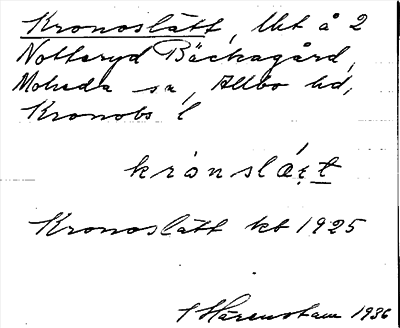 Kronoslätt, lht å 2
Notteryd Bäckagård,
Moheda sn, Allbo hd,
Kronobs l
krònslæ̀t
Kronoslätt kt 1925
S Härenstam 1936